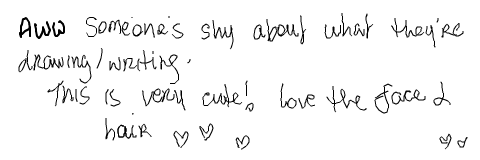 Aww Someone's shy about what they're
drawing/writing.
This is very cute! love the face &
hair ♡ ♡ ♡ ♡ ♡